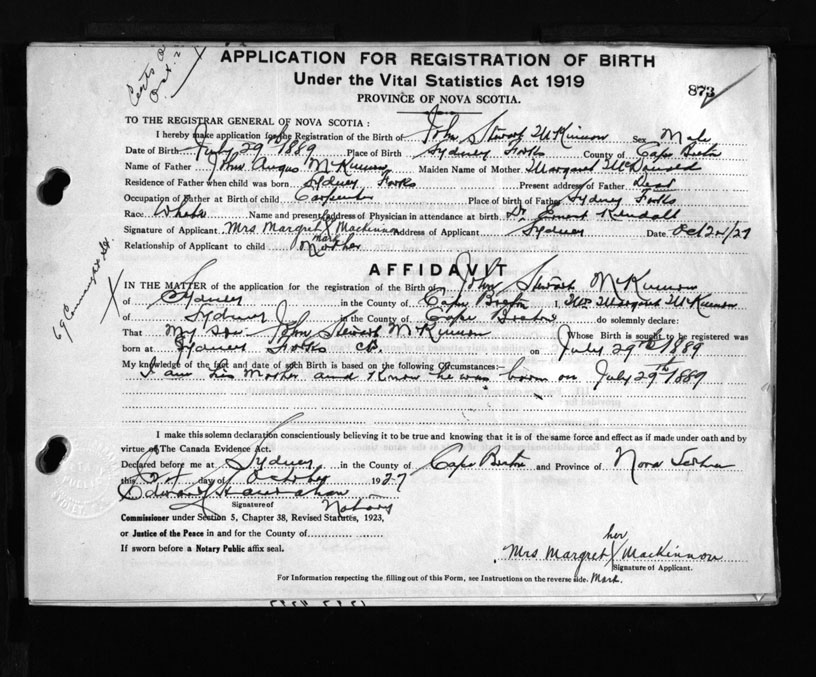 APPLICATION FOR REGISTRATION OF BIRTH
Under the Vital Statistics Act 1919
PROVINCE OF NOVA SCOTIA.
873
Certs
Oct. 2
TO THE REGISTRAR GENERAL OF NOVA SCOTIA:
I hereby make application for the Registration of the Birth of John Stewart McKinnon Sex Male
Date of Birth July 29 1889 Place of Birth Sydney Forks County of Cape Breton
Name of Father John Angus McKinnon Maiden Name of Mother Margaret McDonald
Residence of Father when child was born Sydney Forks Present address of Father Dead
Occupation of Father at Birth of child Carpenter Place of birth of Father Sydney Forks
Race White Name and present address of Physician in attendance at birth Dr Ernest Kendall
Signature of Applicant Mrs Margret X Mackinnon Address of Applicant Sydney Date Oct 21/27
mark
Relationship of Applicant to child Mother
AFFIDAVIT
IN THE MATTER of the application for the registration of the Birth of John Stewart McKinnon
of Sydney in the County of Cape Breton I, Mrs Margaret McKinnon
of Sydney in the County of Cape Breton do solemnly declare:
That My son John Stewart McKinnon Whose Birth is sought to be registered was
born at Sydney Forks CB. on July 29th 1889
My knowledge of the fact and date of such Birth is based on the following Circumstances:—
I am his Mother and know he was born on July 29th 1889
I make this solemn declaration conscientiously believing it to be true and knowing that it is of the same force and effect as if made under oath and by
virtue of The Canada Evidence Act.
Declared before me at Sydney in the County of Cape Breton and Province of Nova Scotia
this 21 day of October 1927
Signature of Notary
Commissioner under Section 5, Chapter 38, Revised Statutes, 1923,
or Justice of the Peace in and for the County of
If sworn before a Notary Public affix seal.
her
Mrs Margret X Mackinnon
Signature of Applicant.
Mark.
For Information respecting the filling out of this Form, see Instructions on the reverse side.